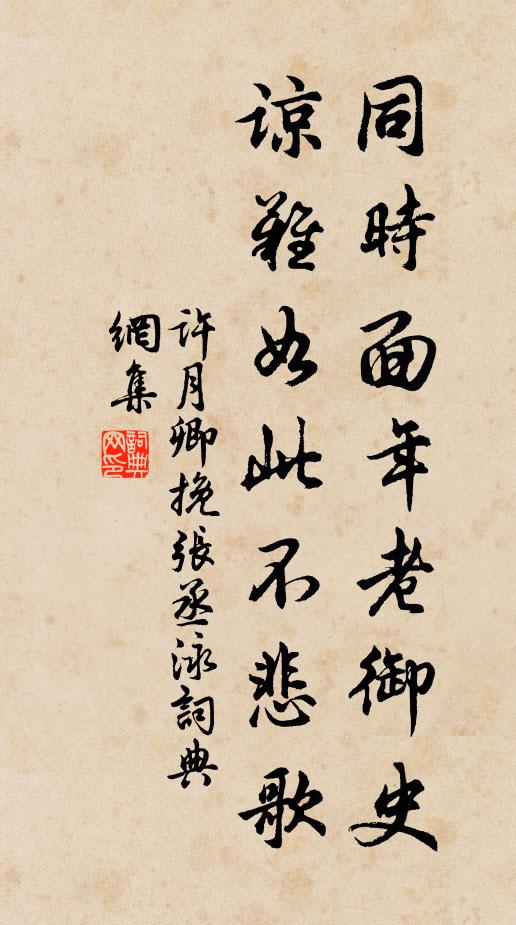 同時面年老御史
諒難如此不悲歌
許月卿挽張丞泳詞典
網集
詞典網印